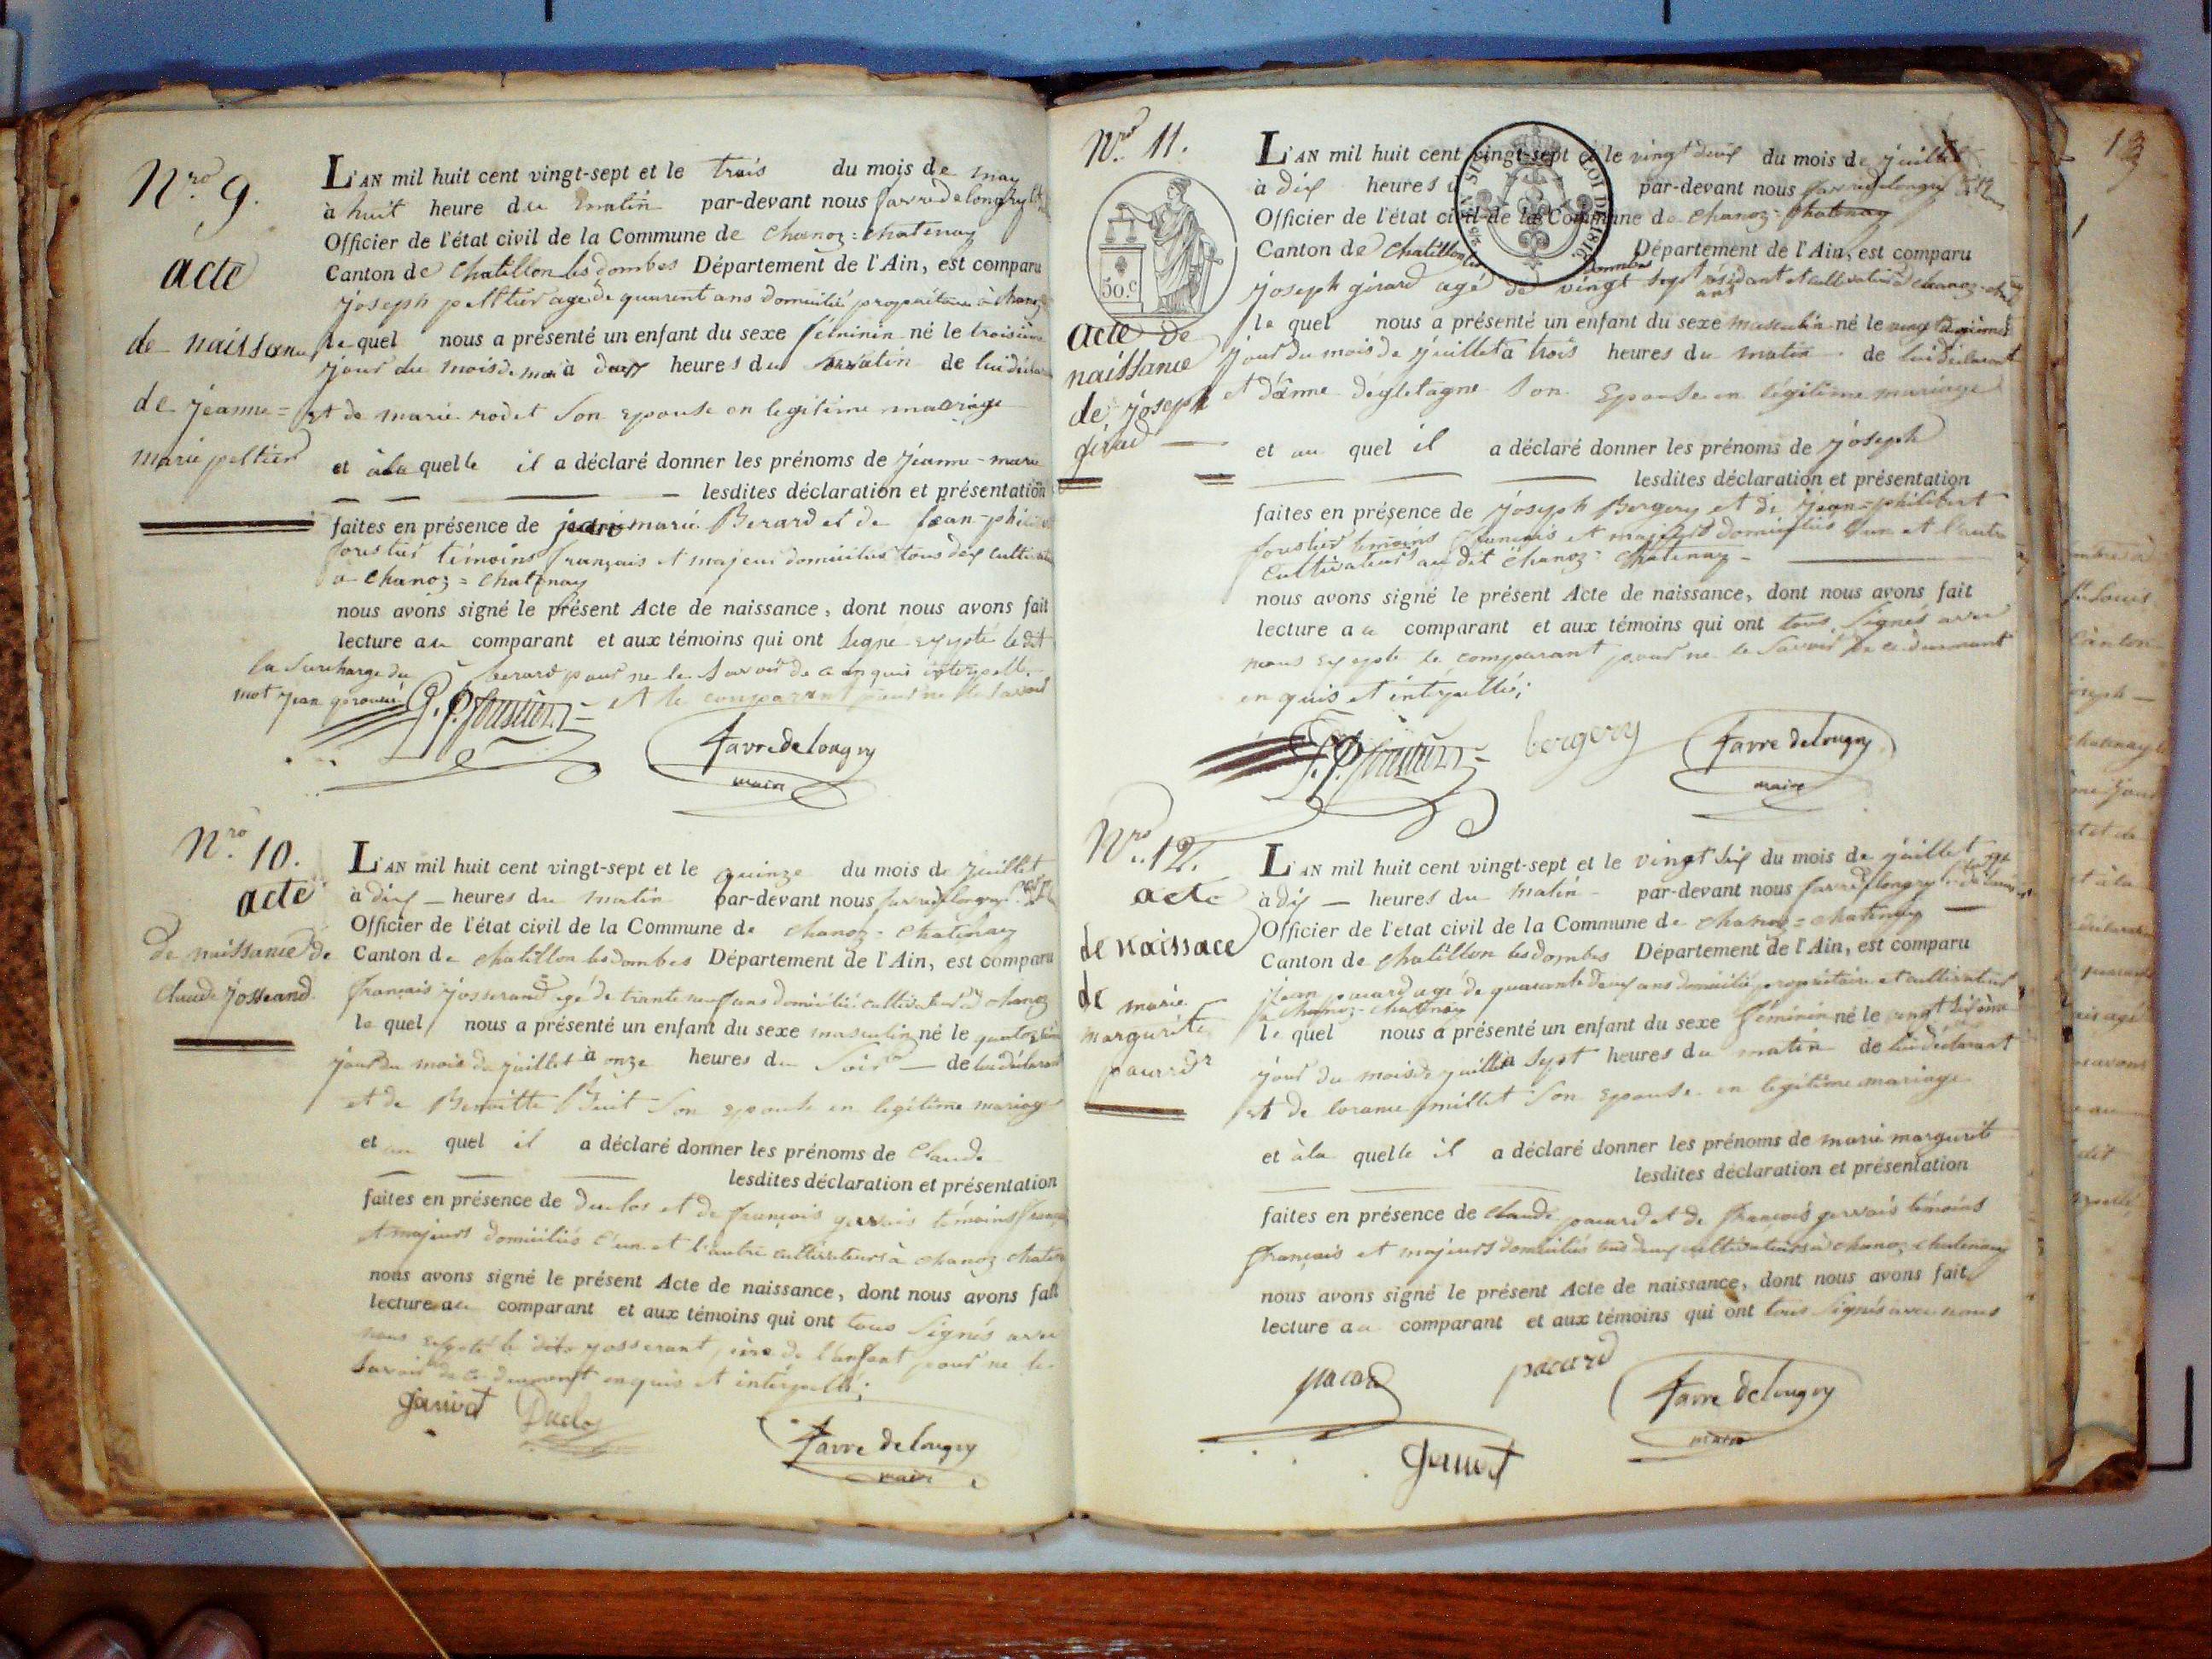 Nro 9.
acte
de naissance
de jeanne =
marie peltier
L'AN mil huit cent vingt-sept et le trois du mois de may
à huit heure du matin par-devant nous favre de longry
Officier de l'état civil de la Commune de chanoz = chatenay
Canton de chatillon les dombes Département de l'Ain, est comparu
joseph peltier agé de quarent ans domicilié propriétaire à chanoz
le quel nous a présenté un enfant du sexe féminin né le troisième
jour du mois de mai à deux heures du matin de lui déclarant
et de marie rodet son epouse en legitime mariage
et à la quelle il a déclaré donner les prénoms de jeanne-marie
lesdites déclaration et présentation
faites en présence de marie Berard et de jean-philibert
foustier témoins français et majeurs domiciliés tous deux cultivateurs
a chanoz = chatenay
nous avons signé le présent Acte de naissance, dont nous avons fait
lecture au comparant et aux témoins qui ont signé excepté ledit
berard pour ne le savoir de ce enquis interpellé
et le comparant pour ne le savoir
la surcharge du
mot jean aprouvé
favre de longry
maire
Nro 10.
acte
de naissance de
claude josserand
L'AN mil huit cent vingt-sept et le quinze du mois de juillet
à dix heures du matin par-devant nous favre de longry
Officier de l'état civil de la Commune de chanoz = chatenay
Canton de chatillon les dombes Département de l'Ain, est comparu
français josserand agé de trante neuf ans domicilié cultivateur à chanoz
le quel nous a présenté un enfant du sexe masculin né le quatorzième
jour du mois de juillet à onze heures du soir de lui déclarant
et de Benoitte son epouse en legitime mariage
et au quel il a déclaré donner les prénoms de Claude
lesdites déclaration et présentation
faites en présence de duclos et de françois gervais témoins français
et majeurs domiciliés l'un et l'autre cultivateurs à chanoz chatenay
nous avons signé le présent Acte de naissance, dont nous avons fait
lecture au comparant et aux témoins qui ont tous signés avec
nous excepté le dit josserant père de l'enfant pour ne le
savoir de ce duement enquis et interpellé;
Duclos
favre de longry
maire
Nro 11.
30.c
LOI DE 1816
acte de
naissance
de joseph
girard
L'AN mil huit cent vingt-sept et le vingt deux du mois de juillet
à dix heures par-devant nous favre de longry
Officier de l'état civil de la Commune de chanoz = chatenay
Canton de chatillon les dombes Département de l'Ain, est comparu
joseph girard agé de vingt sept ans résidant et cultivateur à chanoz
le quel nous a présenté un enfant du sexe masculin né le vingt deuxième
jour du mois de juillet à trois heures du matin de lui déclarant
et d'anne degletagne son Epouse en légitime mariage
et au quel il a déclaré donner les prénoms de joseph
lesdites déclaration et présentation
faites en présence de joseph Bergery et de jean-philibert
foustier témoins français et majeurs domiciliés l'un et l'autre
cultivateurs au dit chanoz = chatenay
nous avons signé le présent Acte de naissance, dont nous avons fait
lecture au comparant et aux témoins qui ont tous signés avec
nous excepté le comparant pour ne le savoir de ce duement
enquis et interpellé;
bergery
favre de longry
maire
Nro 12.
acte
de naissace
de marie
margurite
L'AN mil huit cent vingt-sept et le vingt six du mois de juillet
à dix heures du matin par-devant nous favre de longry
Officier de l'état civil de la Commune de chanoz = chatenay
Canton de chatillon les dombes Département de l'Ain, est comparu
jean pacard agé de quarante deux ans domicilié propriétaire et cultivateur
a chanoz-chatenay
le quel nous a présenté un enfant du sexe féminin né le vingt sixième
jour du mois de juillet à sept heures du matin de lui déclarant
et de millet son epouse en legitime mariage
et à la quelle il a déclaré donner les prénoms de marie margurite
lesdites déclaration et présentation
faites en présence de claude pacard et de françois gervais témoins
français et majeurs domiciliés tous deux cultivateurs à chanoz chatenay
nous avons signé le présent Acte de naissance, dont nous avons fait
lecture au comparant et aux témoins qui ont tous signés avec nous
pacard
pacard
favre de longry
maire
13